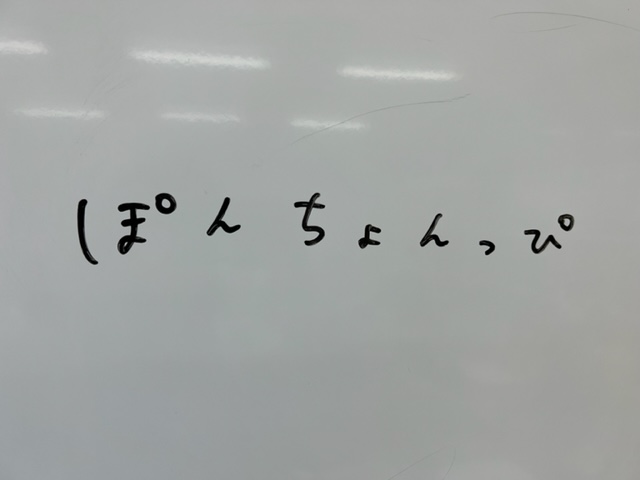 ぽんちょんっぴ